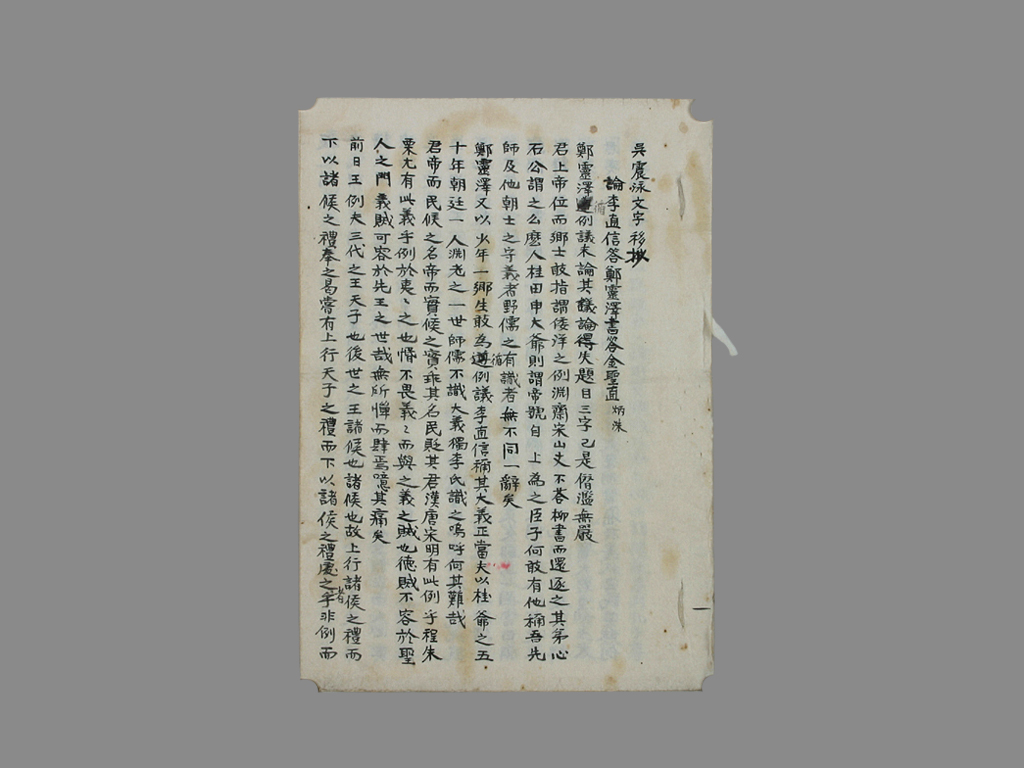 吳震泳文字移撥
論李直信答鄭靈澤書答金聖直 炳洙
鄭靈澤遵循例議末論其議論得失題目三字已是僭濫無嚴
君上帝位而鄉士敢指謂倭洋之例淵齋宋山丈不答柳書而還逐之其弟心
石公謂之么麽人桂田申大爺則謂帝號自 上爲之臣子何敢有他稱吾先
師及他朝士之守義者野儒之有識者無不同一辭矣
鄭靈澤又以少年一鄉生敢為遵循例議李直信稱其大義正當夫以桂爺之五
十年朝廷一人淵老之一世師儒不識大義獨李氏識之嗚呼何其難哉
君帝而民候之名帝而實候之實非其名民貶其君漢唐宋明有此例乎程朱
栗尤有此義乎例於夷〻之也惛不畏義〻而與之義之賊也德賊不容於聖
人之門義賊可容於先王之世哉無所憚而肆焉噫其痛矣
前日王例夫三代之王天子也後世之王諸候也諸候也故上行諸侯之禮而
下以諸候之禮奉之曷嘗有上行天子之禮而下以諸侯之禮處之者乎非例而